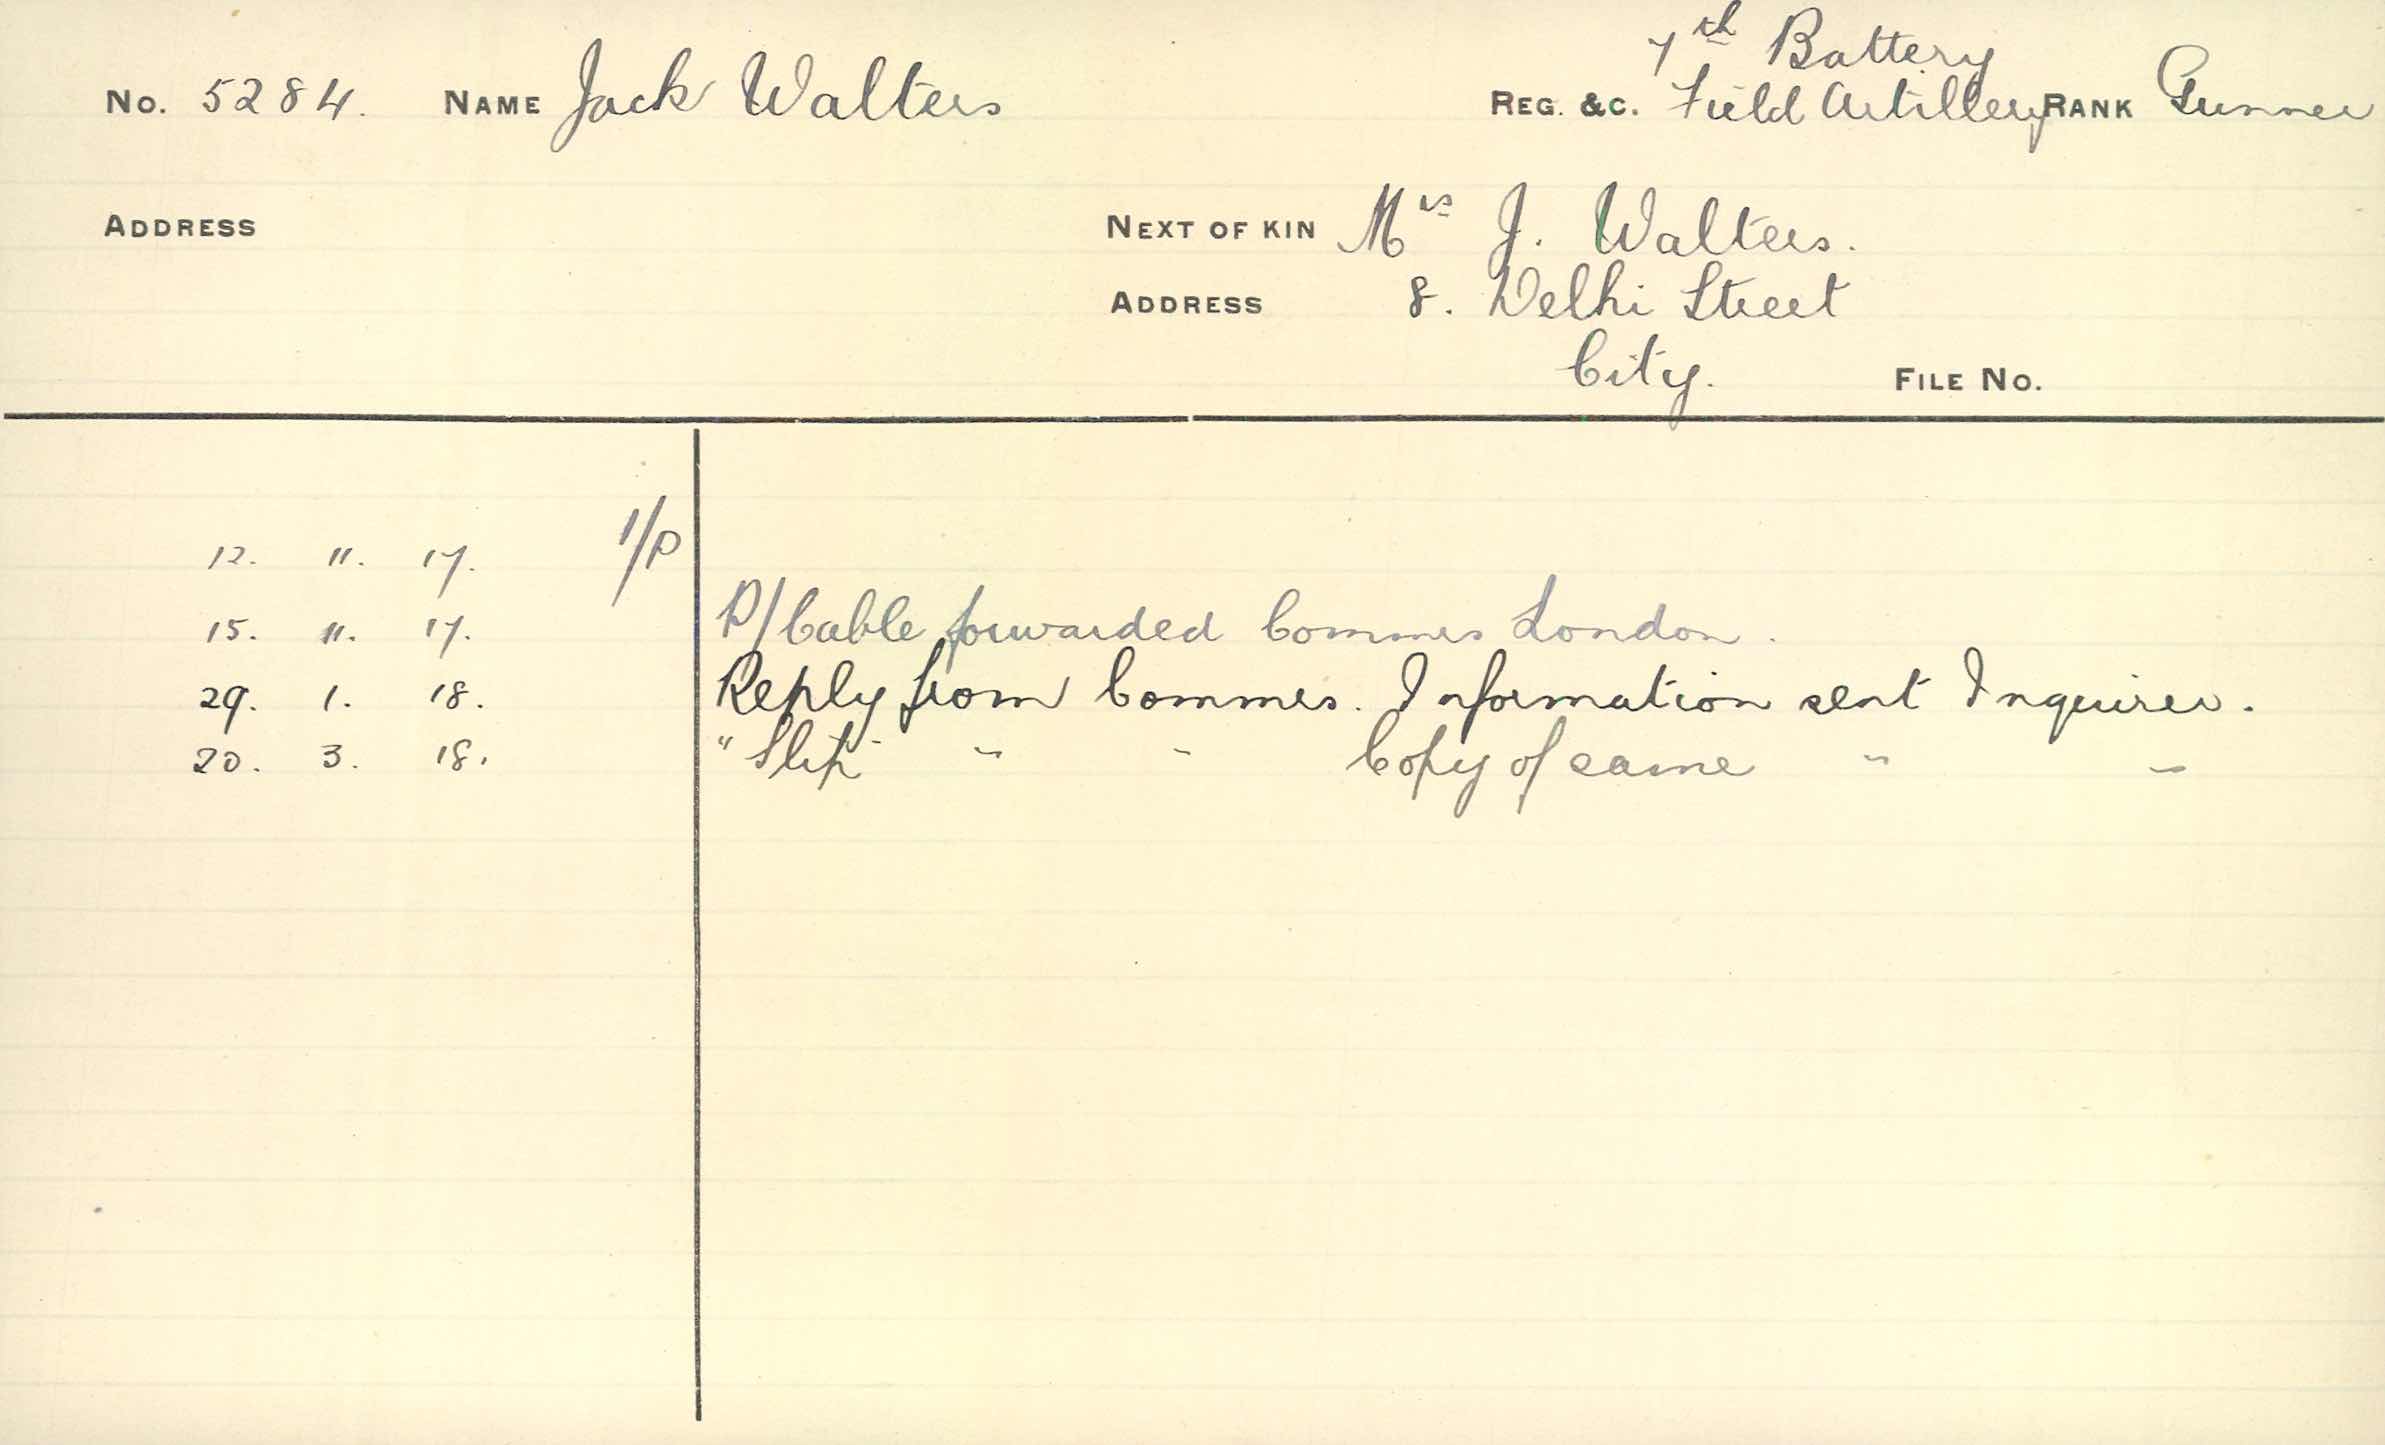 7th Battery
No. 5284. NAME Jack Walters REG. &C. Field Artillery RANK Gunner
ADDRESS NEXT OF KIN Mrs J. Walters.
ADDRESS 8. Delhi Street
City. FILE No.
12. 11. 17. 1/P
15. 11. 17. P/Cable forwarded Commrs London.
29. 1. 18. Reply from Commrs. Information sent Inquirer.
20. 3. 18. " Slip " " Copy of same " "